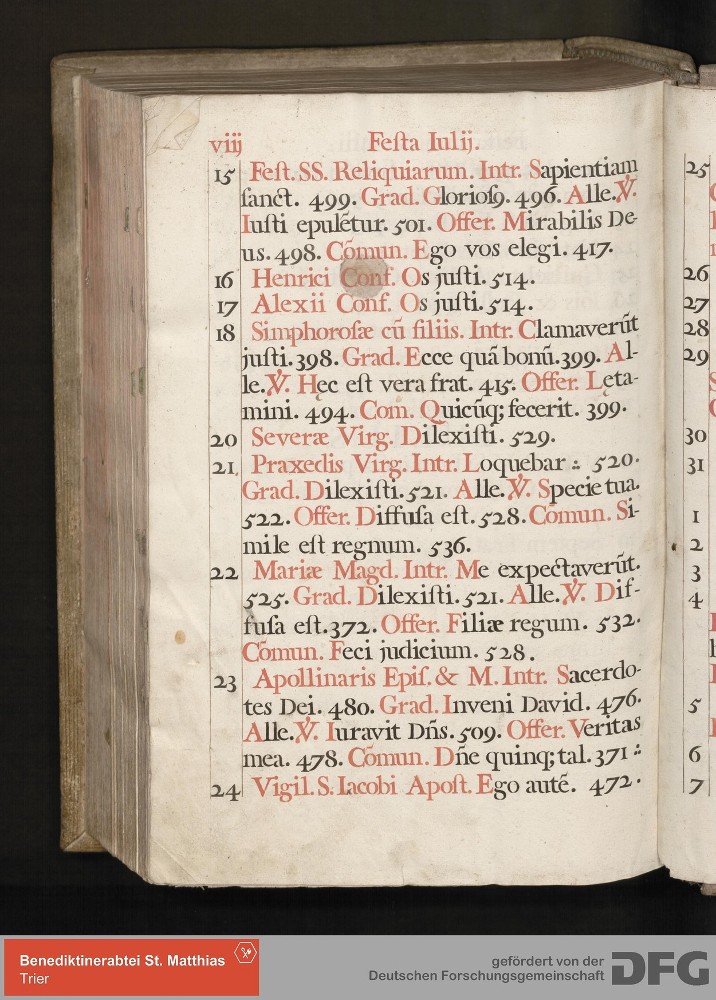 viij
Festa Iulij.
15 Fest. SS. Reliquiarum. Intr. Sapientiam
sanct. 499. Grad. Glorios9. 496. Alle. ℣.
Iusti epulẽtur. 501. Offer. Mirabilis De-
us. 498. Cõmun. Ego vos elegi. 417.
16 Henrici Conf. Os justi. 514.
17 Alexii Conf. Os justi. 514.
18 Simphorosæ cũ filiis. Intr. Clamaverũt
justi. 398. Grad. Ecce quã bonũ. 399. Al-
le. ℣. Hęc est vera frat. 415. Offer. Lęta-
mini. 494. Com. Quicũq; fecerit. 399.
20 Severæ Virg. Dilexisti. 529.
21. Praxedis Virg. Intr. Loquebar .: 520.
Grad. Dilexisti. 521. Alle. ℣. Specie tua.
522. Offer. Diffusa est. 528. Cõmun. Si-
mile est regnum. 536.
22 Mariæ Magd. Intr. Me expectaverũt.
525. Grad. Dilexisti. 521. Alle. ℣. Dif-
fusa est. 372. Offer. Filiæ regum. 532.
Cõmun. Feci judicium. 528.
23 Apollinaris Epis. & M. Intr. Sacerdo-
tes Dei. 480. Grad. Inveni David. 476.
Alle. ℣. Iuravit Dñs. 509. Offer. Veritas
mea. 478. Cõmun. Dñe quinq; tal. 371 .:
24 Vigil. S. Iacobi Apost. Ego autẽ. 472.
25
26
27
28
29
30
31
1
2
3
4
5
6
7
Benediktinerabtei St. Matthias
Trier
gefördert von der
Deutschen Forschungsgemeinschaft
DFG